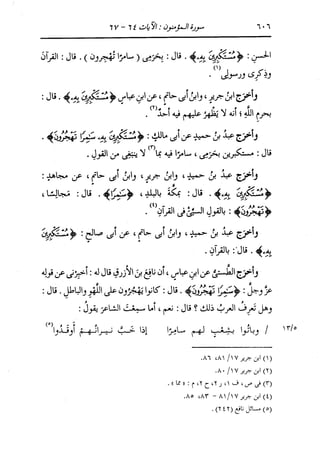 ٦٠٦ سورة المؤمنون : الآيات ٦٤ - ٦٧
الحسن : ﴿مُسْتَكْبِرِينَ بِهِ﴾ . قال : بحَرَمى (سامرًا تُهجِرون) . قال : القرآنَ
وذِكْرى ورسولى(١) .
وأخرَج ابنُ جريرٍ ، وابنُ أبى حاتمٍ ، عن ابنِ عباسٍ : ﴿مُسْتَكْبِرِينَ بِهِ﴾ . قال :
بحرمِ اللهِ ؛ أنه لا يَظهَرُ عليهم فيه أحدٌ(٢) .
وأخرَج عبدُ بنُ حميدٍ عن أبى مالكٍ : ﴿مُسْتَكْبِرِينَ بِهِ سَٰمِرًا تَهْجُرُونَ﴾ .
قال : مستكبرين بحَرَمى ، سامرًا فيه بما(٣) لا ينبغى من القولِ .
وأخرَج عبدُ بنُ حميدٍ ، وابنُ جريرٍ ، وابنُ أبى حاتمٍ ، عن مجاهدٍ :
﴿مُسْتَكْبِرِينَ بِهِ﴾ . قال : بمكةَ بالبلدِ ، ﴿سَٰمِرًا﴾ . قال : مَجالسًا ،
﴿تَهْجُرُونَ﴾ : بالقولِ السيِّئ فى القرآنِ(٤) .
وأخرَج عبدُ بنُ حميدٍ ، وابنُ أبى حاتمٍ ، عن أبى صالحٍ : ﴿مُسْتَكْبِرِينَ
بِهِ﴾ . قال : بالقرآنِ .
وأخرَج الطَّستىُّ عن ابنِ عباسٍ ، أن نافعَ بنَ الأزرقِ قال له : أخبِرْنى عن قولِه
عزَّ وجلَّ : ﴿سَٰمِرًا تَهْجُرُونَ﴾ . قال : كانوا يَهْجُرون على اللهوِ والباطلِ . قال :
وهل تعرِفُ العربُ ذلك ؟ قال : نعم ، أما سمِعتَ الشاعرَ يقولُ :
١٣/٥ / وباتُوا بشِعبٍ لهم سامرًا إذا خبَّ نيرانُهم أوقَدوا(٥)
(١) ابن جرير ١٧/ ٨١، ٨٦.
(٢) ابن جرير ١٧/ ٨٠.
(٣) فى ص ، ف ١، ر ٢، ح ٢، م : « مما » .
(٤) ابن جرير ١٧/ ٨١ - ٨٣، ٨٥.
(٥) مسائل نافع (٢٤٢) .